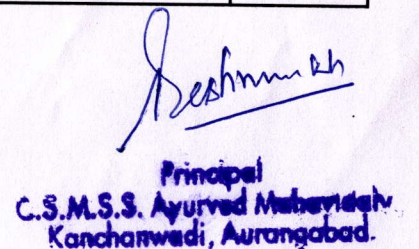 Principal
C.S.M.S.S. Ayurved Mahavidalv
Kanchanwadi, Aurangabad.